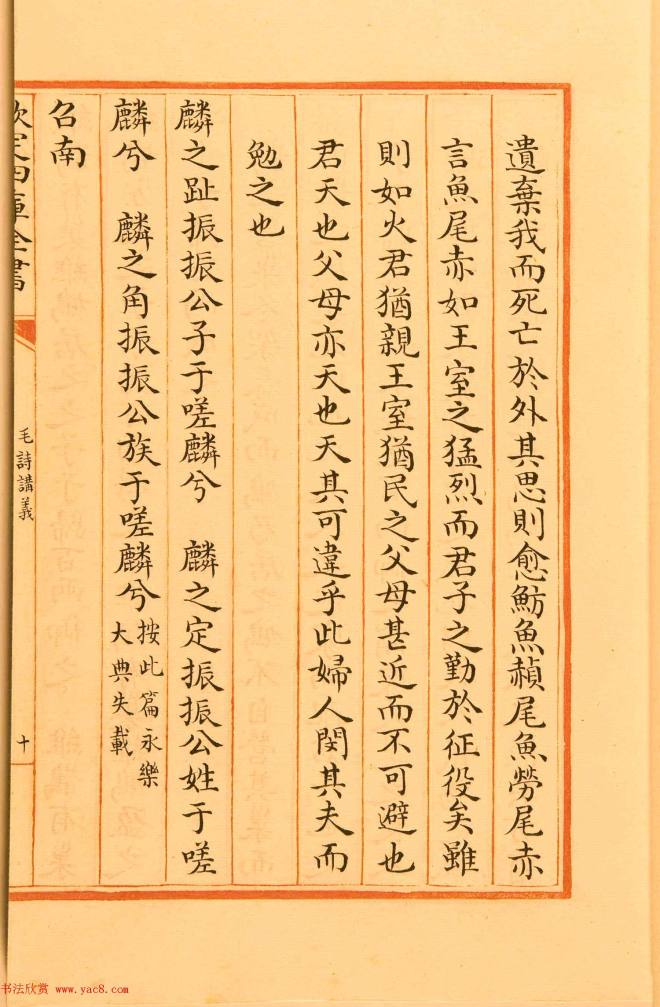 遺棄我而死亡於外其思則愈魴魚赬尾魚勞尾赤
言魚尾赤如王室之猛烈而君子之勤於征役矣雖
則如火君猶親王室猶民之父母甚近而不可避也
君天也父母亦天也天其可違乎此婦人閔其夫而
勉之也
麟之趾振振公子于嗟麟兮 麟之定振振公姓于嗟
麟兮 麟之角振振公族于嗟麟兮 按此篇永樂
大典失載
召南
欽定四庫全書
毛詩講義
十
书法欣赏 www.yac8.com